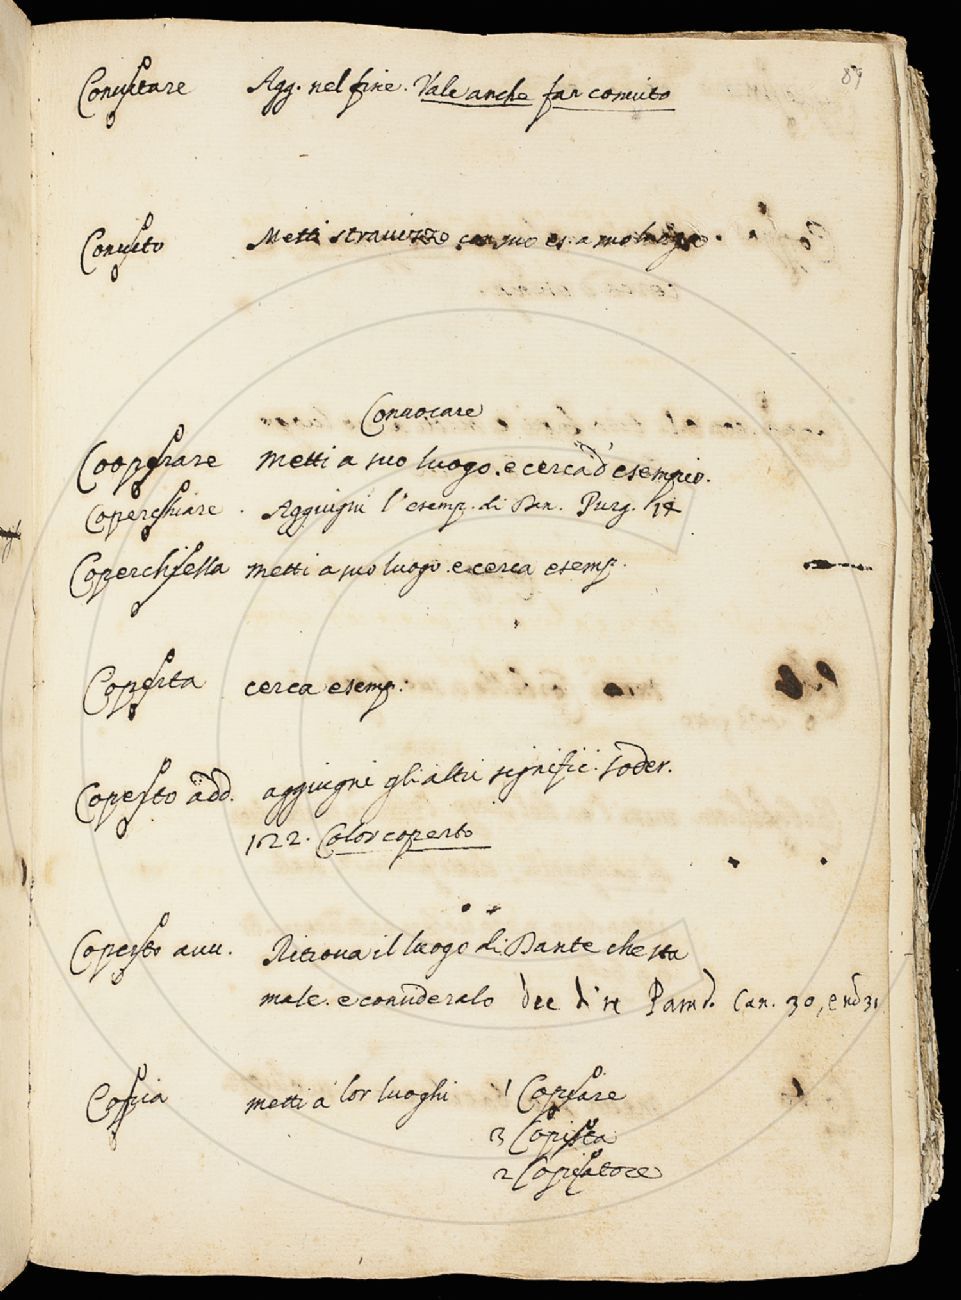 89
Conuitare Agg. nel fine. Vale anche far conuito
Conuito Metti strauizzo con suo es. a suo luogo.
Conuocare
Cooperare metti a suo luogo. e cerca d'esempio.
Coperchiare. Aggiugni l'esemp. di Dan. Purg. 14
Coperchiella metti a suo luogo. e cerca esemp.
Coperta cerca esemp.
Coperto add. aggiugni gli altri signific. Soder.
122. Color coperto
Coperto auu. Ritroua il luogo di Dante che sta
male. e consideralo dee dire Parad. Can. 30, e nō 31
Coppia metti a lor luoghi 1 Copiare
3 Copista
2 Copiatore